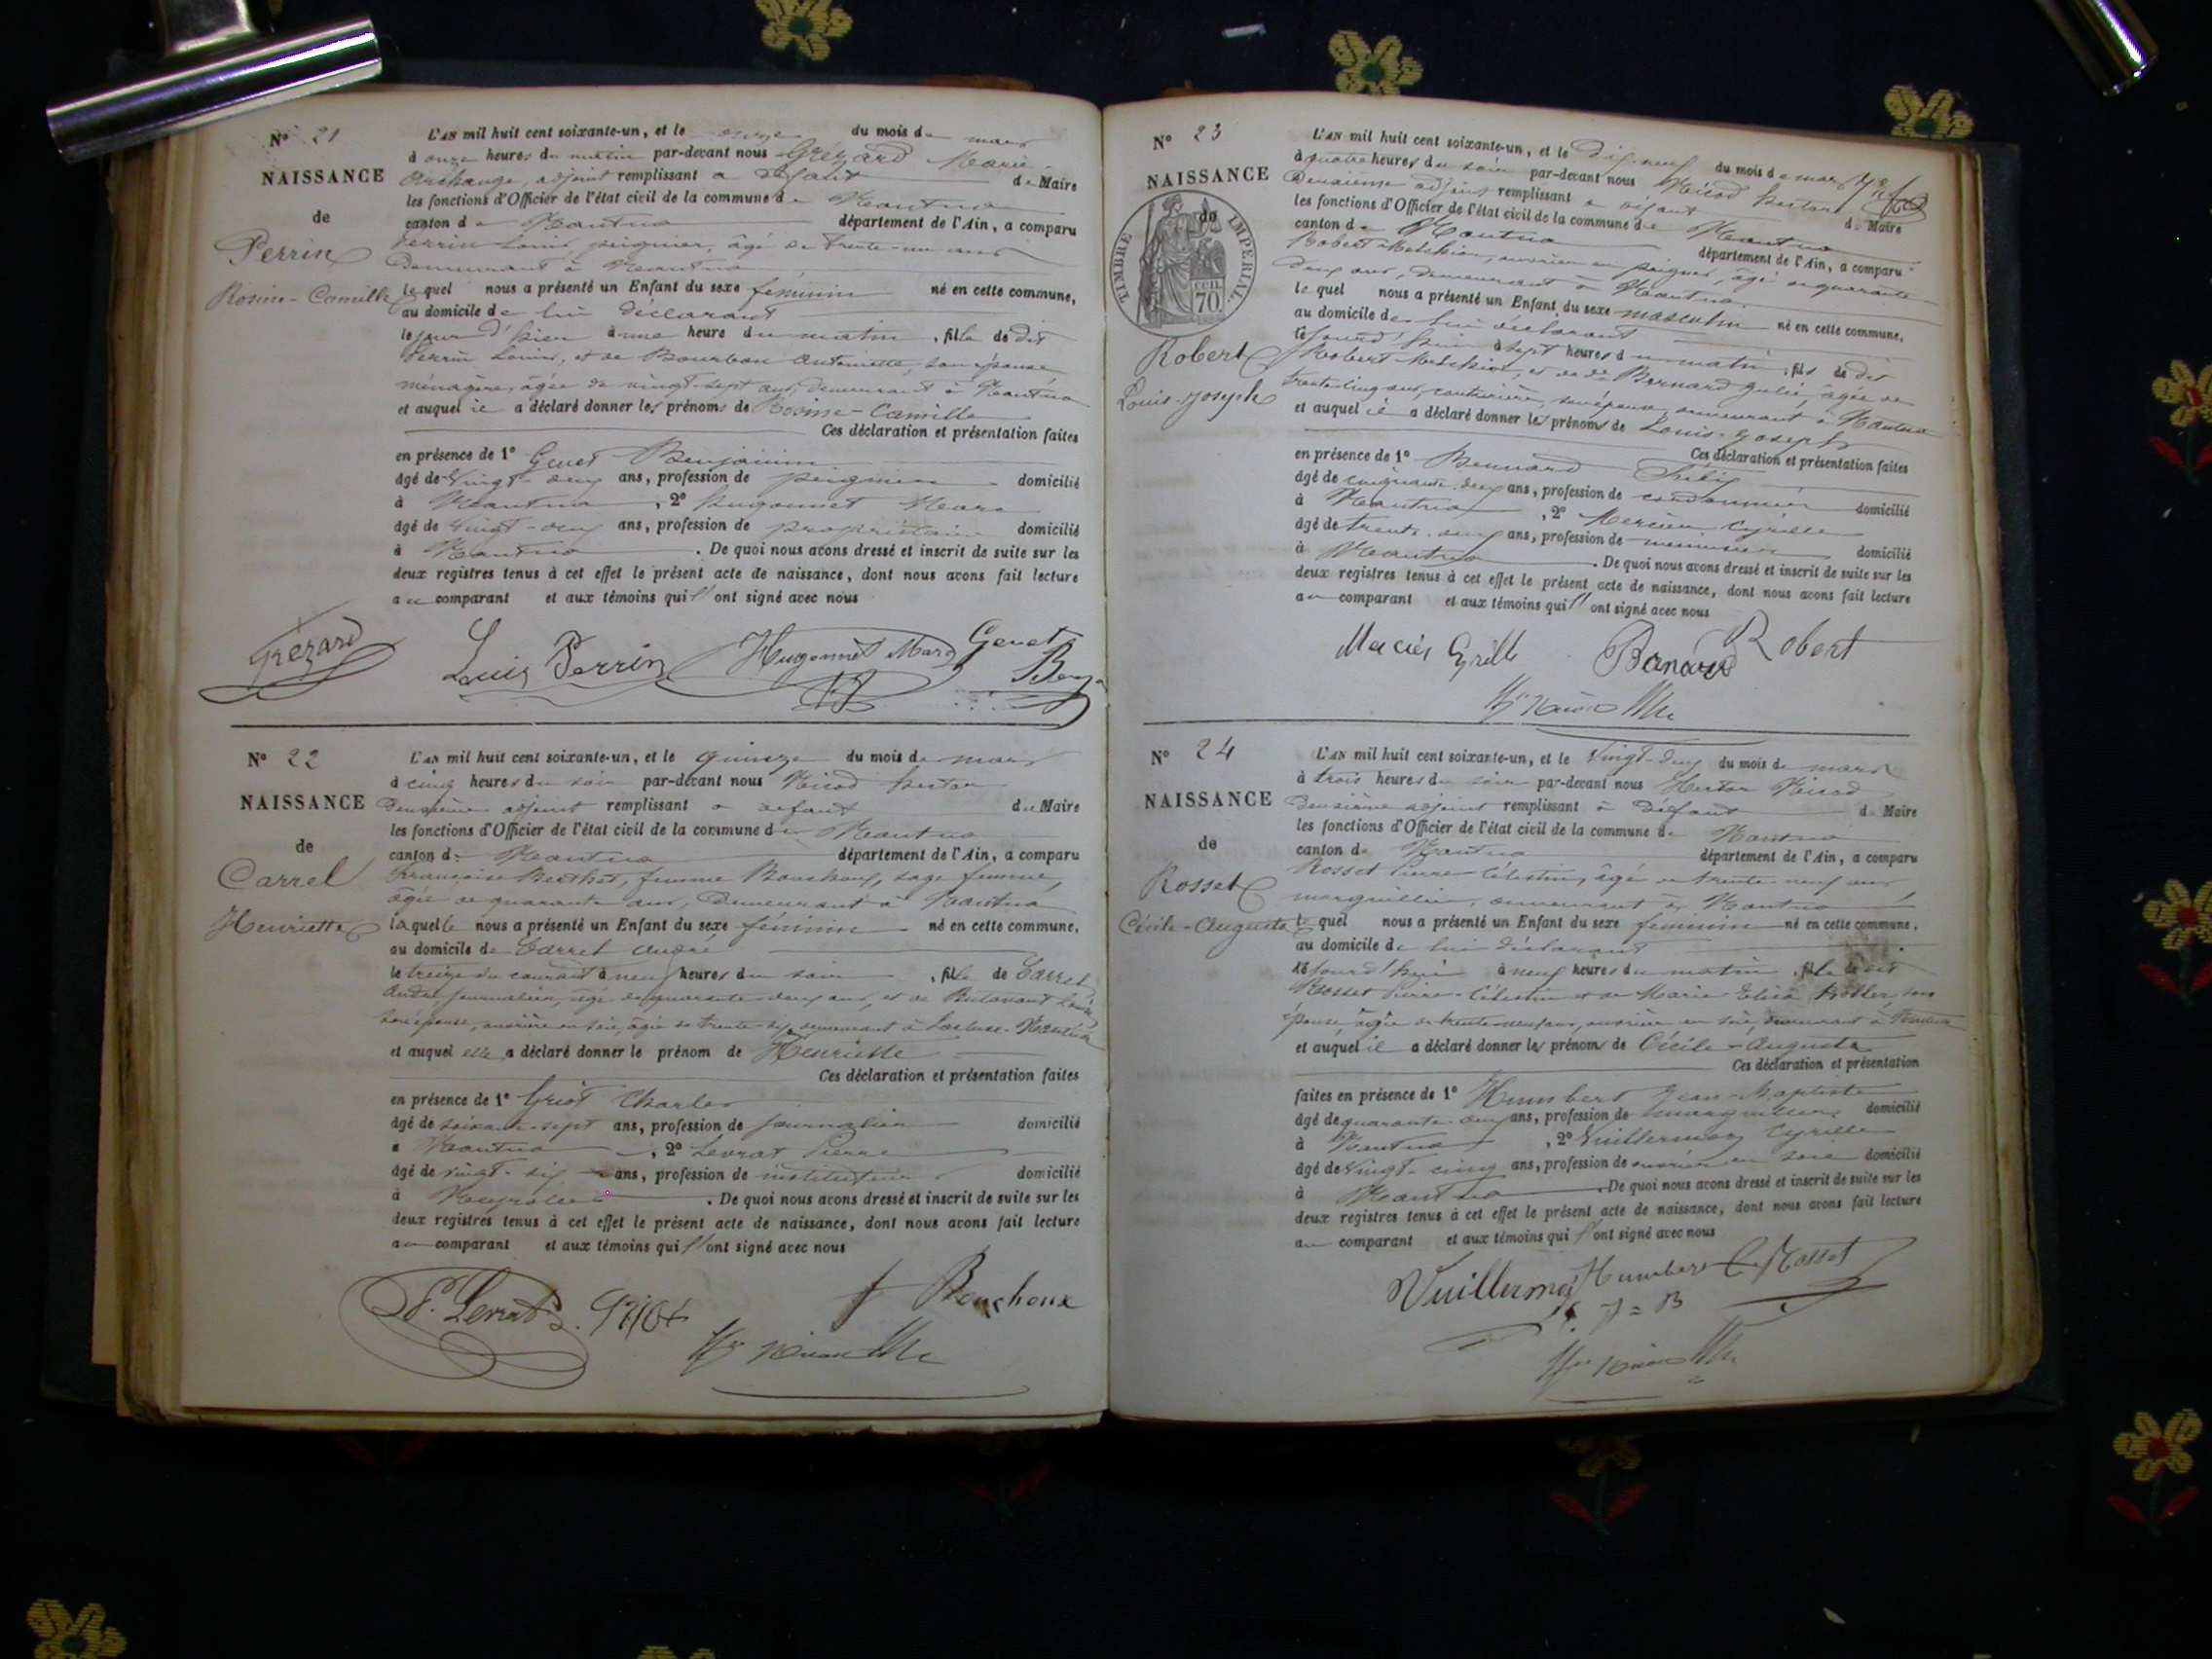 N° 21
NAISSANCE
de
Perrin
Rosine-Camille
L'AN mil huit cent soixante-un, et le onze du mois de mars
à onze heures du matin par-devant nous Grézard Marie-
Archange, adjoint remplissant à défaut du Maire
les fonctions d'Officier de l'état civil de la commune de Nantua
canton de Nantua département de l'Ain, a comparu
Perrin Louis, peignier, âgé de trente-un ans
demeurant à Nantua
lequel nous a présenté un Enfant du sexe féminin né en cette commune,
au domicile de lui déclarant
le jour d'hier à une heure du matin, fille de dit
Perrin Louis, et de Bourbon Antoinette, son épouse
ménagère, âgée de vingt-sept ans, demeurant à Nantua
et auquel il a déclaré donner les prénoms de Rosine-Camille
Ces déclaration et présentation faites
en présence de 1° Genet Benjamin
âgé de vingt-deux ans, profession de peignier domicilié
à Nantua, 2° Hugonnet Marc
âgé de vingt-deux ans, profession de propriétaire domicilié
à Nantua. De quoi nous avons dressé et inscrit de suite sur les
deux registres tenus à cet effet le présent acte de naissance, dont nous avons fait lecture
au comparant et aux témoins qui l'ont signé avec nous
Grézard Louis Perrin Hugonnet Marc Genet
N° 22
NAISSANCE
de
Carrel
Henriette
L'AN mil huit cent soixante-un, et le quinze du mois de mars
à cinq heures du soir par-devant nous Nicod Hector
deuxième adjoint remplissant à défaut du Maire
les fonctions d'Officier de l'état civil de la commune de Nantua
canton de Nantua département de l'Ain, a comparu
Françoise Berthet, femme Bouchoux, sage femme,
âgée de quarante ans, demeurant à Nantua
laquelle nous a présenté un Enfant du sexe féminin né en cette commune,
au domicile de Carrel André
le treize du courant à neuf heures du soir, fille de Carrel
André journalier, âgé de quarante deux ans, et de
son épouse, ouvrière en soie, âgée de trente six demeurant à Nantua
et auquel elle a déclaré donner le prénom de Henriette
Ces déclaration et présentation faites
en présence de 1° Griot Charles
âgé de soixante-sept ans, profession de journalier domicilié
à Nantua, 2° Levrat Pierre
âgé de vingt-six ans, profession de instituteur domicilié
à . De quoi nous avons dressé et inscrit de suite sur les
deux registres tenus à cet effet le présent acte de naissance, dont nous avons fait lecture
au comparant et aux témoins qui l'ont signé avec nous
P. Levrat Griot f Bouchoux
N° 23
NAISSANCE
de
TIMBRE IMPERIAL
CEN.
70
Robert
Louis-Joseph
L'AN mil huit cent soixante-un, et le dix-neuf du mois de mars
à quatre heures du soir par-devant nous Nicod Hector
deuxième adjoint remplissant à défaut du Maire
les fonctions d'Officier de l'état civil de la commune de Nantua
canton de Nantua département de l'Ain, a comparu
Robert Melchior, ouvrier en peignes, âgé de quarante-
deux ans, demeurant à Nantua
lequel nous a présenté un Enfant du sexe masculin né en cette commune,
au domicile de lui déclarant
le jourd'hui à sept heures du matin, fils de dit
Robert Melchior, et de Bernard Julie âgée de
trente-cinq ans, couturière, son épouse, demeurant à Nantua
et auquel il a déclaré donner les prénoms de Louis-Joseph
Ces déclaration et présentation faites
en présence de 1° Bernard Félix
âgé de cinquante-deux ans, profession de cordonnier domicilié
à Nantua, 2° Mercier Cyrille
âgé de trente-deux ans, profession de menuisier domicilié
à Nantua. De quoi nous avons dressé et inscrit de suite sur les
deux registres tenus à cet effet le présent acte de naissance, dont nous avons fait lecture
au comparant et aux témoins qui l'ont signé avec nous
Mercier Cyrille Robert
N° 24
NAISSANCE
de
Rosset
Cécile-Augusta
L'AN mil huit cent soixante-un, et le vingt-deux du mois de mars
à trois heures du soir par-devant nous Hector Nicod
deuxième adjoint remplissant à défaut du Maire
les fonctions d'Officier de l'état civil de la commune de Nantua
canton de Nantua département de l'Ain, a comparu
Rosset Pierre Célestin, âgé de trente-neuf ans
marguillier, demeurant à Nantua
lequel nous a présenté un Enfant du sexe féminin né en cette commune,
au domicile de lui déclarant
le jourd'hui à neuf heures du matin, fille de dit
Rosset Pierre-Célestin et de Marie Elisa Roller, son
épouse, âgée de trente-neuf ans, ouvrière en soie, demeurant à Nantua
et auquel il a déclaré donner les prénoms de Cécile-Augusta
Ces déclaration et présentation
faites en présence de 1° Humbert Jean-Baptiste
âgé de quarante deux ans, profession de domicilié
à Nantua, 2° Vuillermoz Cyrille
âgé de vingt-cinq ans, profession de ouvrier en soie domicilié
à Nantua. De quoi nous avons dressé et inscrit de suite sur les
deux registres tenus à cet effet le présent acte de naissance, dont nous avons fait lecture
au comparant et aux témoins qui l'ont signé avec nous
Vuillermoz Humbert C. Rosset
J=B